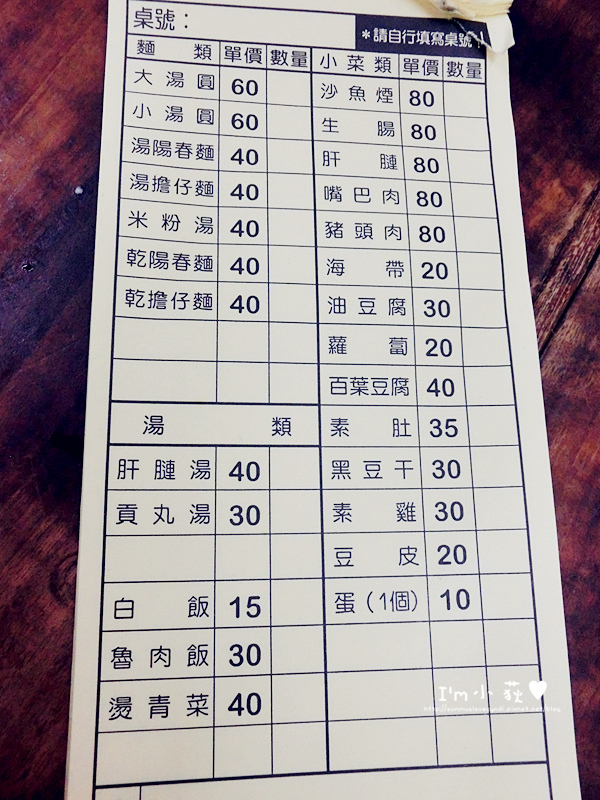 桌號：
*請自行填寫桌號!
麵類 單價 數量
大湯圓 60
小湯圓 60
湯陽春麵 40
湯擔仔麵 40
米粉湯 40
乾陽春麵 40
乾擔仔麵 40
湯類
肝腱湯 40
貢丸湯 30
白飯 15
魯肉飯 30
燙青菜 40
小菜類 單價 數量
沙魚煙 80
生腸 80
肝腱 80
嘴巴肉 80
豬頭肉 80
海帶 20
油豆腐 30
蘿蔔 20
百葉豆腐 40
素肚 35
黑豆干 30
素雞 30
豆皮 20
蛋(1個) 10
I'm小荻♥